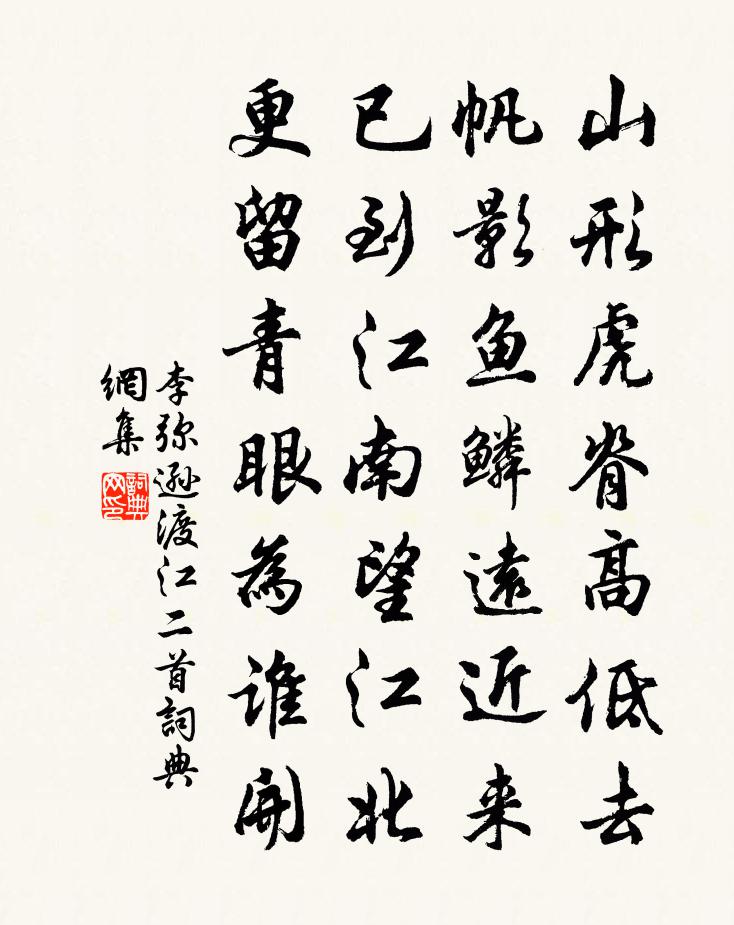 山形虎脊高低去
帆影鱼鳞遠近来
已到江南望江北
更留青眼為谁開
李弥遜渡江二首詞典
網集
詞典
网印